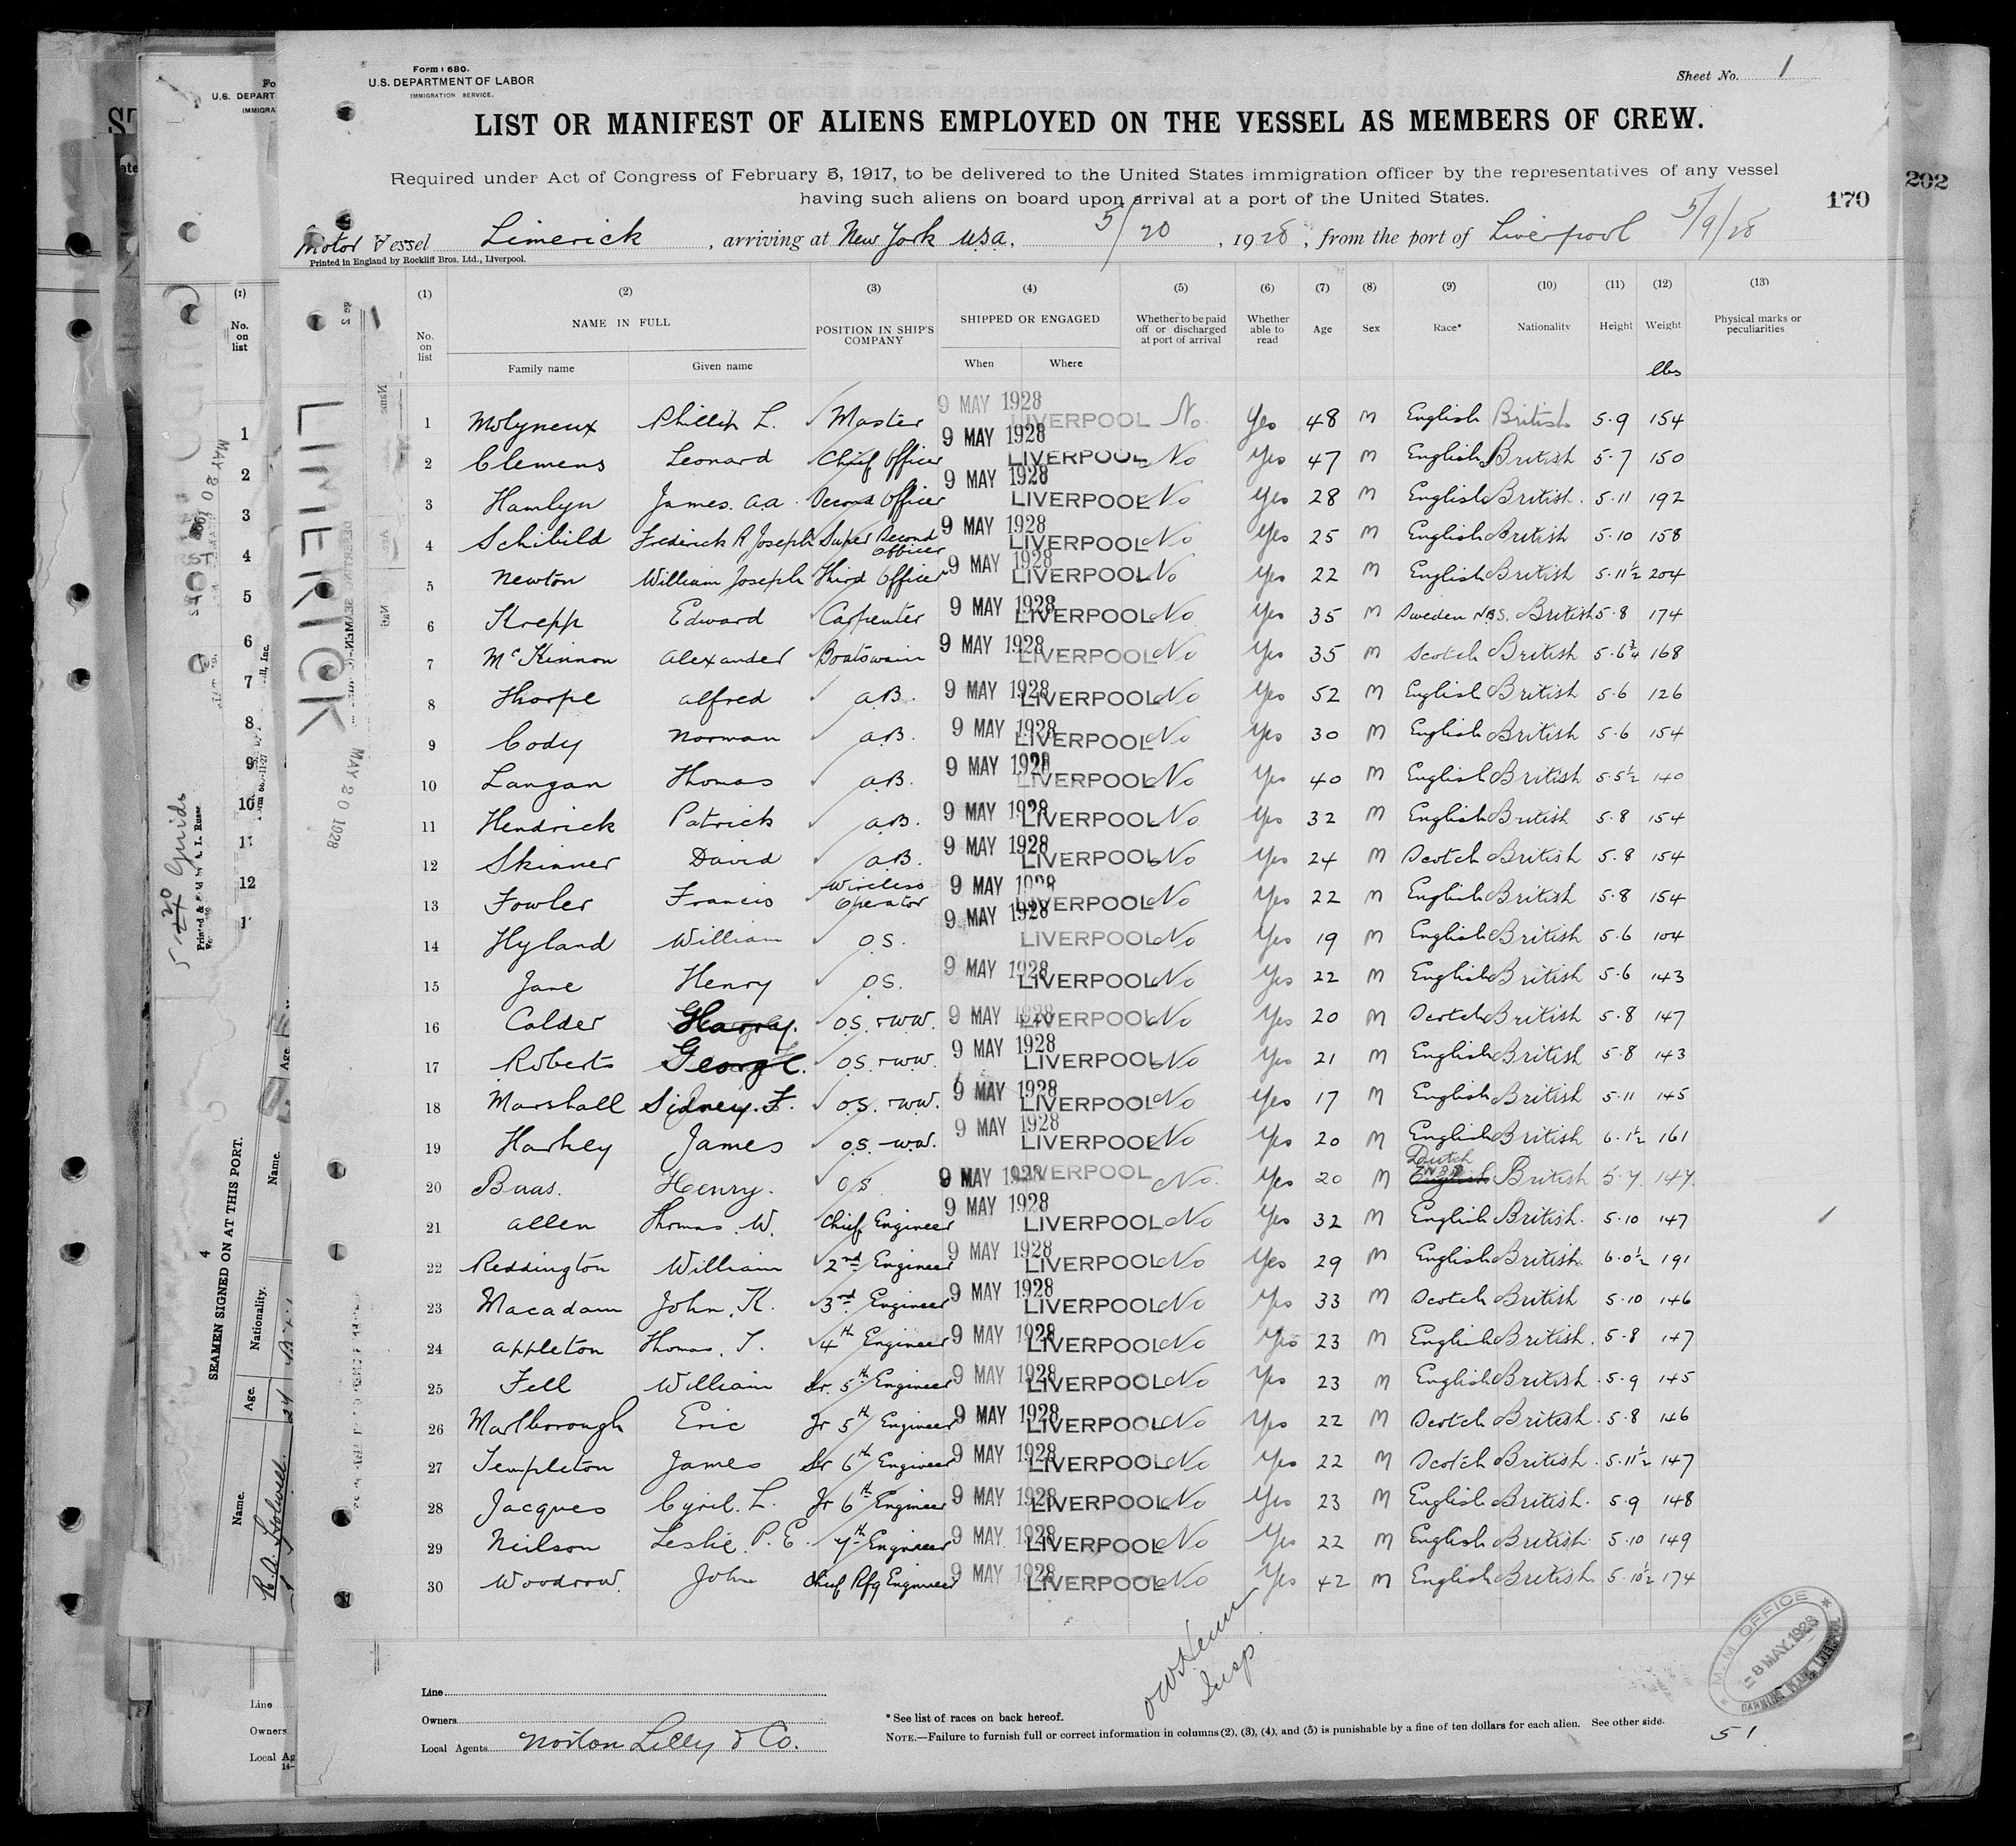 Form 680.
U.S. DEPARTMENT OF LABOR
IMMIGRATION SERVICE.
Sheet No. 1
LIST OR MANIFEST OF ALIENS EMPLOYED ON THE VESSEL AS MEMBERS OF CREW.
Required under Act of Congress of February 5, 1917, to be delivered to the United States immigration officer by the representatives of any vessel
having such aliens on board upon arrival at a port of the United States.
170
202
Motor Vessel Limerick, arriving at New York U.S.A. 5/20, 1928, from the port of Liverpool 5/9/28
Printed in England by Rockliff Bros. Ltd., Liverpool.
(1) (2) (3) (4) (5) (6) (7) (8) (9) (10) (11) (12) (13)
No. on list NAME IN FULL POSITION IN SHIP'S COMPANY SHIPPED OR ENGAGED Whether to be paid off or discharged at port of arrival Whether able to read Age Sex Race* Nationality Height Weight Physical marks or peculiarities
Family name Given name When Where lbs
1 Molyneux Phillip L. Master 9 MAY 1928 LIVERPOOL No Yes 48 M English British 5.9 154
2 Clemens Leonard Chief Officer 9 MAY 1928 LIVERPOOL No Yes 47 M English British 5.7 150
3 Hamlyn James. A.A. Second Officer 9 MAY 1928 LIVERPOOL No Yes 28 M English British 5.11 192
4 Schibild Frederick R Joseph Super Second Officer 9 MAY 1928 LIVERPOOL No Yes 25 M English British 5.10 158
5 Newton William Joseph Third Officer 9 MAY 1928 LIVERPOOL No Yes 22 M English British 5.11½ 204
6 Krepp Edward Carpenter 9 MAY 1928 LIVERPOOL No Yes 35 M Sweden N.B.S. British 5.8 174
7 McKinnon Alexander Boatswain 9 MAY 1928 LIVERPOOL No Yes 35 M Scotch British 5.6¾ 168
8 Thorpe Alfred A.B. 9 MAY 1928 LIVERPOOL No Yes 52 M English British 5.6 126
9 Cody Norman A.B. 9 MAY 1928 LIVERPOOL No Yes 30 M English British 5.6 154
10 Langan Thomas A.B. 9 MAY 1928 LIVERPOOL No Yes 40 M English British 5.5½ 140
11 Hendrick Patrick A.B. 9 MAY 1928 LIVERPOOL No Yes 32 M English British 5.8 154
12 Skinner David A.B. 9 MAY 1928 LIVERPOOL No Yes 24 M Scotch British 5.8 154
13 Fowler Francis Wireless Operator 9 MAY 1928 LIVERPOOL No Yes 22 M English British 5.8 154
14 Hyland William O.S. 9 MAY 1928 LIVERPOOL No Yes 19 M English British 5.6 104
15 Jane Henry O.S. 9 MAY 1928 LIVERPOOL No Yes 22 M English British 5.6 143
16 Calder Harry. O.S. + W.W. 9 MAY 1928 LIVERPOOL No Yes 20 M Scotch British 5.8 147
17 Roberts George. O.S. + W.W. 9 MAY 1928 LIVERPOOL No Yes 21 M English British 5.8 143
18 Marshall Sidney. F. O.S. + W.W. 9 MAY 1928 LIVERPOOL No Yes 17 M English British 5.11 145
19 Harkey James O.S. + W.W. 9 MAY 1928 LIVERPOOL No Yes 20 M English British 6.1½ 161
20 Baas. Henry. O.S. 9 MAY 1928 LIVERPOOL No. Yes 20 M Dutch English British 5.7. 147.
21 Allen Thomas. W. Chief Engineer 9 MAY 1928 LIVERPOOL No Yes 32 M English British. 5.10 147
22 Reddington William 2nd Engineer 9 MAY 1928 LIVERPOOL No Yes 29 M English British. 6.0½ 191
23 Macadam John. K. 3rd Engineer 9 MAY 1928 LIVERPOOL No Yes 33 M Scotch British 5.10 146
24 Appleton Thomas. T. 4th Engineer 9 MAY 1928 LIVERPOOL No Yes 23 M English British. 5.8 147
25 Fell William Sr. 5th Engineer 9 MAY 1928 LIVERPOOL No Yes 23 M English British. 5.9 145
26 Marlborough Eric Jr 5th Engineer 9 MAY 1928 LIVERPOOL No Yes 22 M Scotch British. 5.8 146
27 Templeton James Sr 6th Engineer 9 MAY 1928 LIVERPOOL No Yes 22 M Scotch British. 5.11½ 147
28 Jacques Cyril. L. Jr 6th Engineer 9 MAY 1928 LIVERPOOL No Yes 23 M English British. 5.9 148
29 Neilson Leslie. P. E. 7th Engineer 9 MAY 1928 LIVERPOOL No Yes 22 M English British. 5.10 149
30 Woodrow. John Chief Rfg Engineer 9 MAY 1928 LIVERPOOL No Yes 42 M English British. 5.10½ 174
Insp.
M.M. OFFICE
8 MAY. 1928
CANNING PLACE, LIVERPOOL
Line
Owners
Local Agents Norton Lilly & Co.
*See list of races on back hereof.
NOTE.—Failure to furnish full or correct information in columns (2), (3), (4), and (5) is punishable by a fine of ten dollars for each alien. See other side.
51
LIMERICK
MAY 20 1928
U.S. DEPART
IMMIGRA
(1)
No. on list
1
2
3
4
5
6
7
8
9
10
11
12
MAY 20
Guido
4
SEAMEN SIGNED ON AT THIS PORT.
Name. Age. Nationality.
Name. Age
Line
Owners
Local Ag